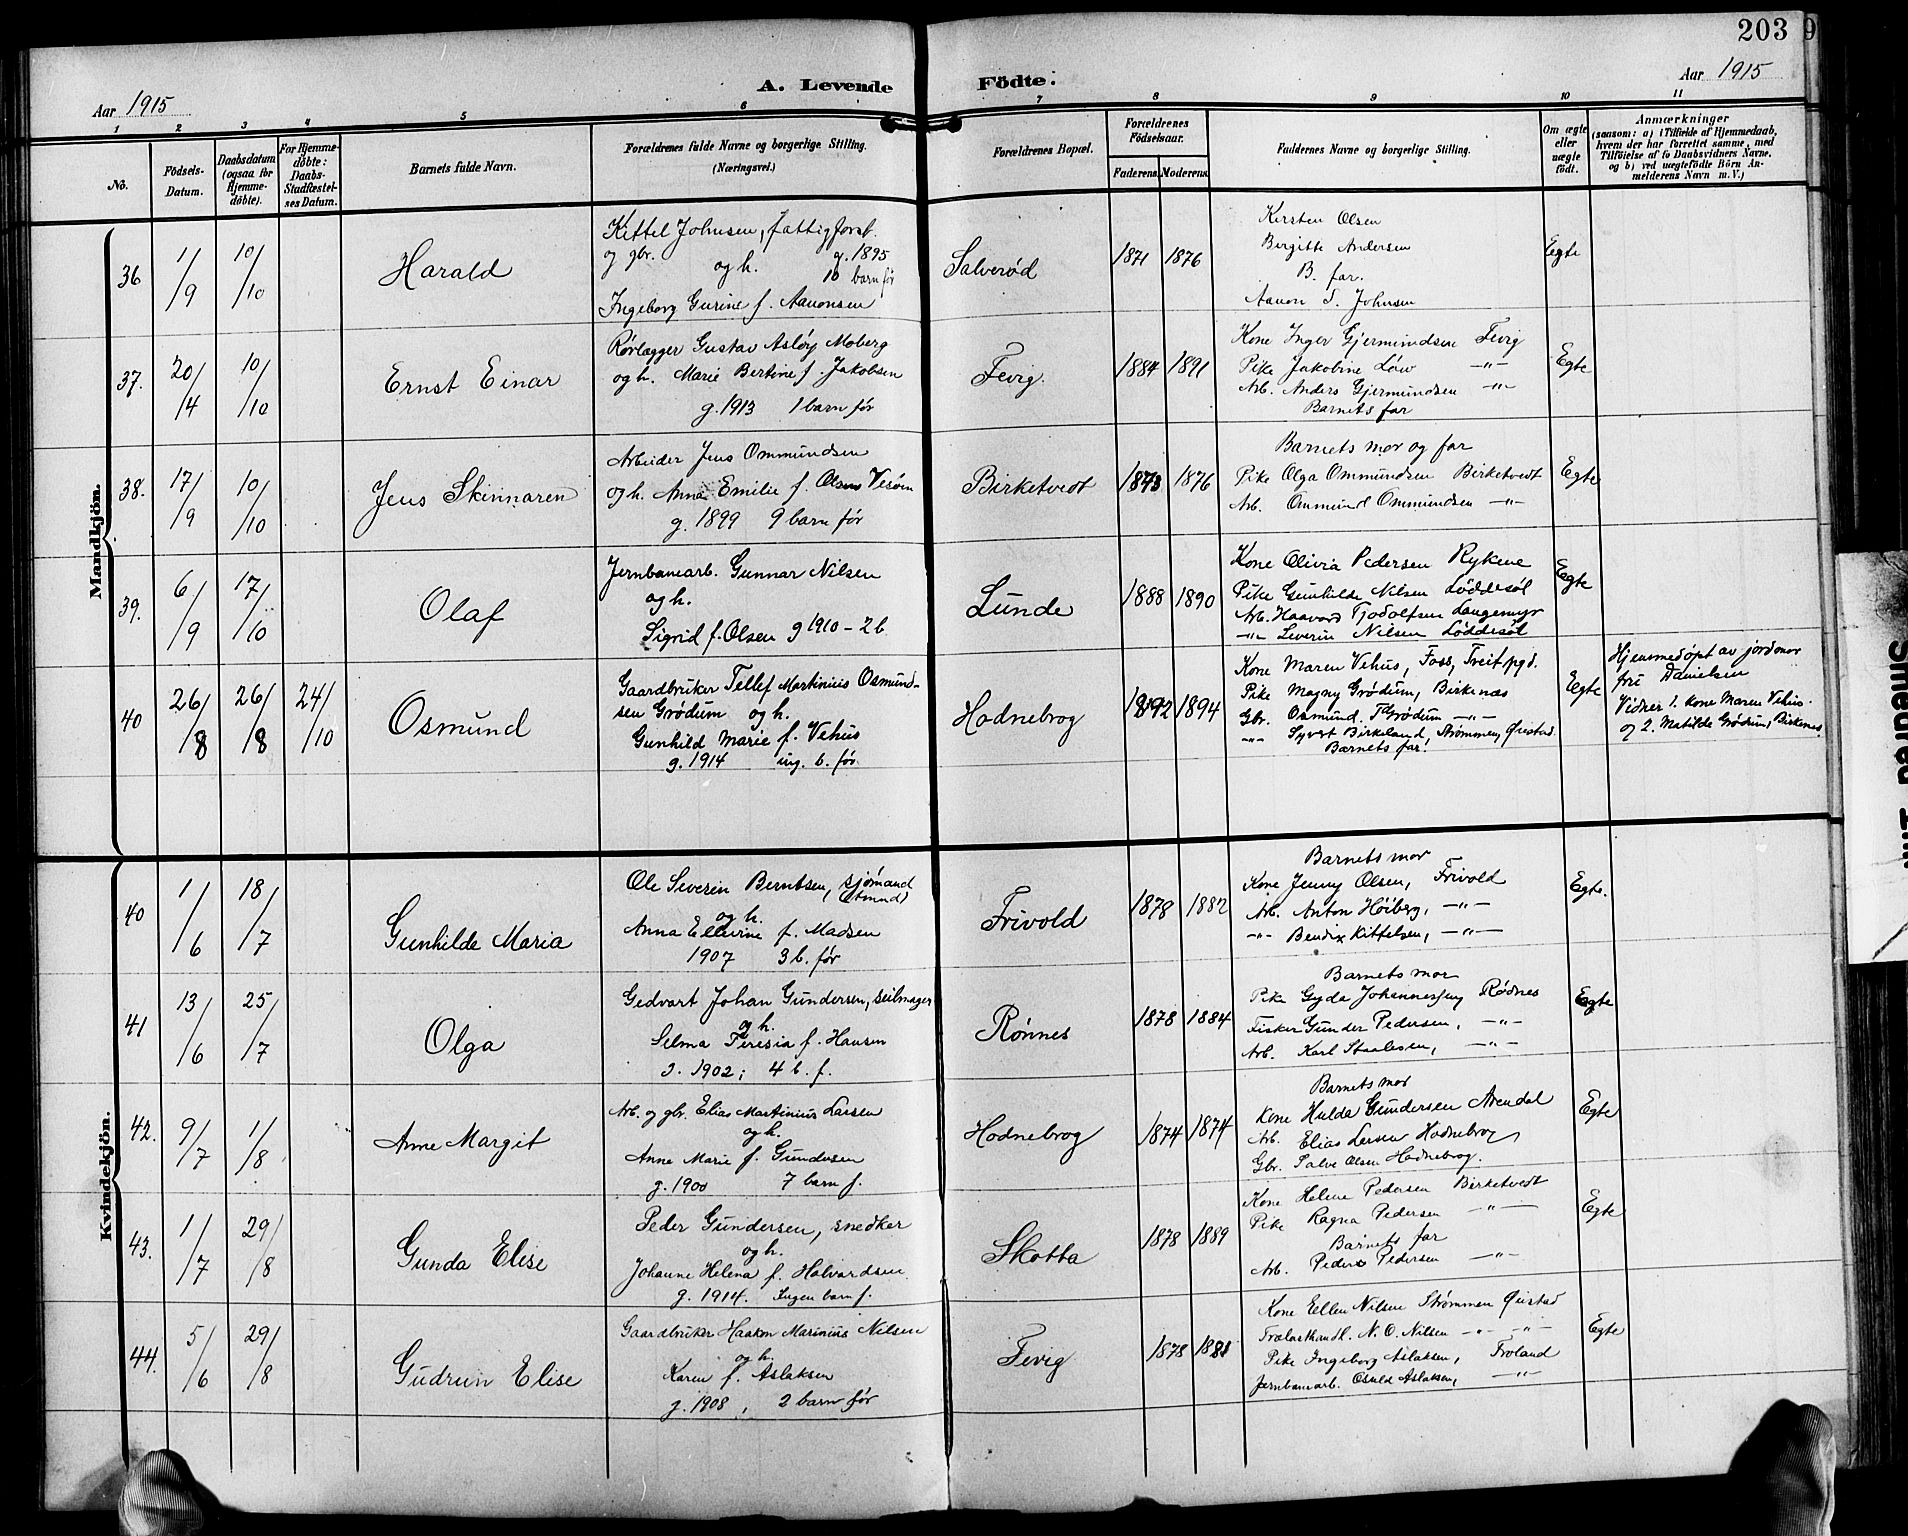 203
9
Aar 1915
A. Levende Födte.
Aar 1915
1 2 3 4 5 6 7 8 9 10 11
No.
Födsels-
Datum.
Daabsdatum
(ogsaa for
Hjemme-
döbte).
For Hjemme-
döbte:
Daabs-
Stadfæstel-
ses Datum.
Barnets fulde Navn.
Forældrenes fulde Navne og borgerlige Stilling.
(Næringsvei.)
Forældrenes Bopæl.
Forældrenes
Födselsaar.
Faderens. Moderens.
Faddernes Navne og borgerlige Stilling.
Om ægte
eller
uægte
födt.
Anmærkninger
(saasom: a) i Tilfælde af Hjemmedaab,
hvem der har forrettet samme, med
Tilföielse af to Daabsvidners Navne,
og b) ved uægtefödte Börn An-
melderens Navn m. V.)
Mandkjön.
36 1/9 10/10 Harald
Kittel Johnsen, fattigforst.
og gbr. g. 1895
og h. 10 barn før
Ingeborg Gurine f. Aanonsen
Salverød 1871 1876
Kirsten Olsen
Birgitte Andersen
B. far.
Aanon T. Johnsen
Egte
37. 20/4 10/10 Ernst Einar
Rørlægger Gustav Asløy Moberg
og h. Marie Bertine f. Jakobsen
g. 1913 1 barn før
Fevig. 1884 1891
Kone Inger Gjermundsen Fevig
Pike Jakobine Löw —"—
Arb. Anders Gjermundsen —"—
Barnets far
Egte
38. 17/9 10/10 Jens Skinnaren
Arbeider Jens Ommundsen
og h. Anna Emilie f. Olsen Verøen
g. 1899 9 barn før
Birketvedt 1873 1876
Barnets mor og far
Pike Olga Ommundsen Birketvedt
Arb. Ommund Ommundsen —"—
Egte
39. 6/9 17/10 Olaf
Jernbanearb. Gunnar Nilsen
og h.
Sigrid f. Olsen g 1910 - 2 b.
Lunde 1888 1890
Kone Olivia Pedersen Rykene
Pike Gunhilde Nilsen Løddesøl
Arb. Haavord Tjodolfsen Langemyr
—"— Severin Nilsen Løddesøl
Egte
40 26/8 26/8 24/10 Osmund
Gaardbruker Tellef Martinius Osmund-
sen Grødum og h.
Gunhild Marie f. Vehus
g. 1914 ing. b. før
Hodnebrog 1892 1894
Kone Maren Vehus, Foss, Treit pgd.
Pike Magny Grødum, Birkenæs
Gbr. Osmund T. Grødum —"—
—"— Syvert Birkeland, Strømmen, Øiestad.
Barnets far.
Egte
Hjemmedøpt av jordmor
fru Danielsen
Vidner 1. Kone Maren Vehus.
og 2. Matilde Grødum, Birkenes
Kvindekjön.
40 1/6 18/7 Gunhilde Maria
Ole Severin Berntsen, sjømand
(Stmnd)
og h.
Anna Ellevine f. Madsen
1907 3 b. før
Frivold 1878 1882
Barnets mor
Kone Jenny Olsen, Frivold
Arb. Anton Höiberg, —"—
—"— Bendix Kittelsen, —"—
Egte.
41 13/6 25/7 Olga
Gedvart Johan Gundersen, seilmager
og h.
Selma Teresia f. Hansen
g. 1902; 4 b. f.
Rønnes 1878 1884
Barnets mor
Pike Gyda Johannessen, Rødnes
Fisker Gunder Pedersen, —"—
Arb. Karl Staalesen, —"—
Egte
42. 9/7 1/8 Anne Margit
Arb. og gbr. Elias Martinius Larsen
og h.
Anne Marie f. Gundersen
g. 1900 7 barn f.
Hodnebrog 1874 1874
Barnets mor
Kone Hulda Gundersen Arendal
Arb. Elias Larsen Hodnebrog
Gbr. Salve Olsen Hodnebrog.
Egte
43. 1/7 29/8 Gunda Elise
Peder Gundersen, snedker
og h.
Johanne Helena f. Halvardsen
g. 1914. Ingen barn f.
Skotta 1878 1889
Kone Helene Pedersen Birketvedt
Pike Ragna Pedersen —"—
Barnets far
Arb. Peder Pedersen —"—
Egte
44. 5/6 29/8 Gudrun Elise
Gaardbruker Haakon Marinius Nilsen
og h.
Karen f. Aslaksen
g. 1908, 2 barn før
Fevig 1878 1881
Kone Ellen Nilsen Strømmen Øiestad
Trælasthandl. N. O. Nilsen —"— —"—
Pike Ingeborg Aslaksen, Froland
Jernbanearb. Osuld Aslaksen, —"—
Egte